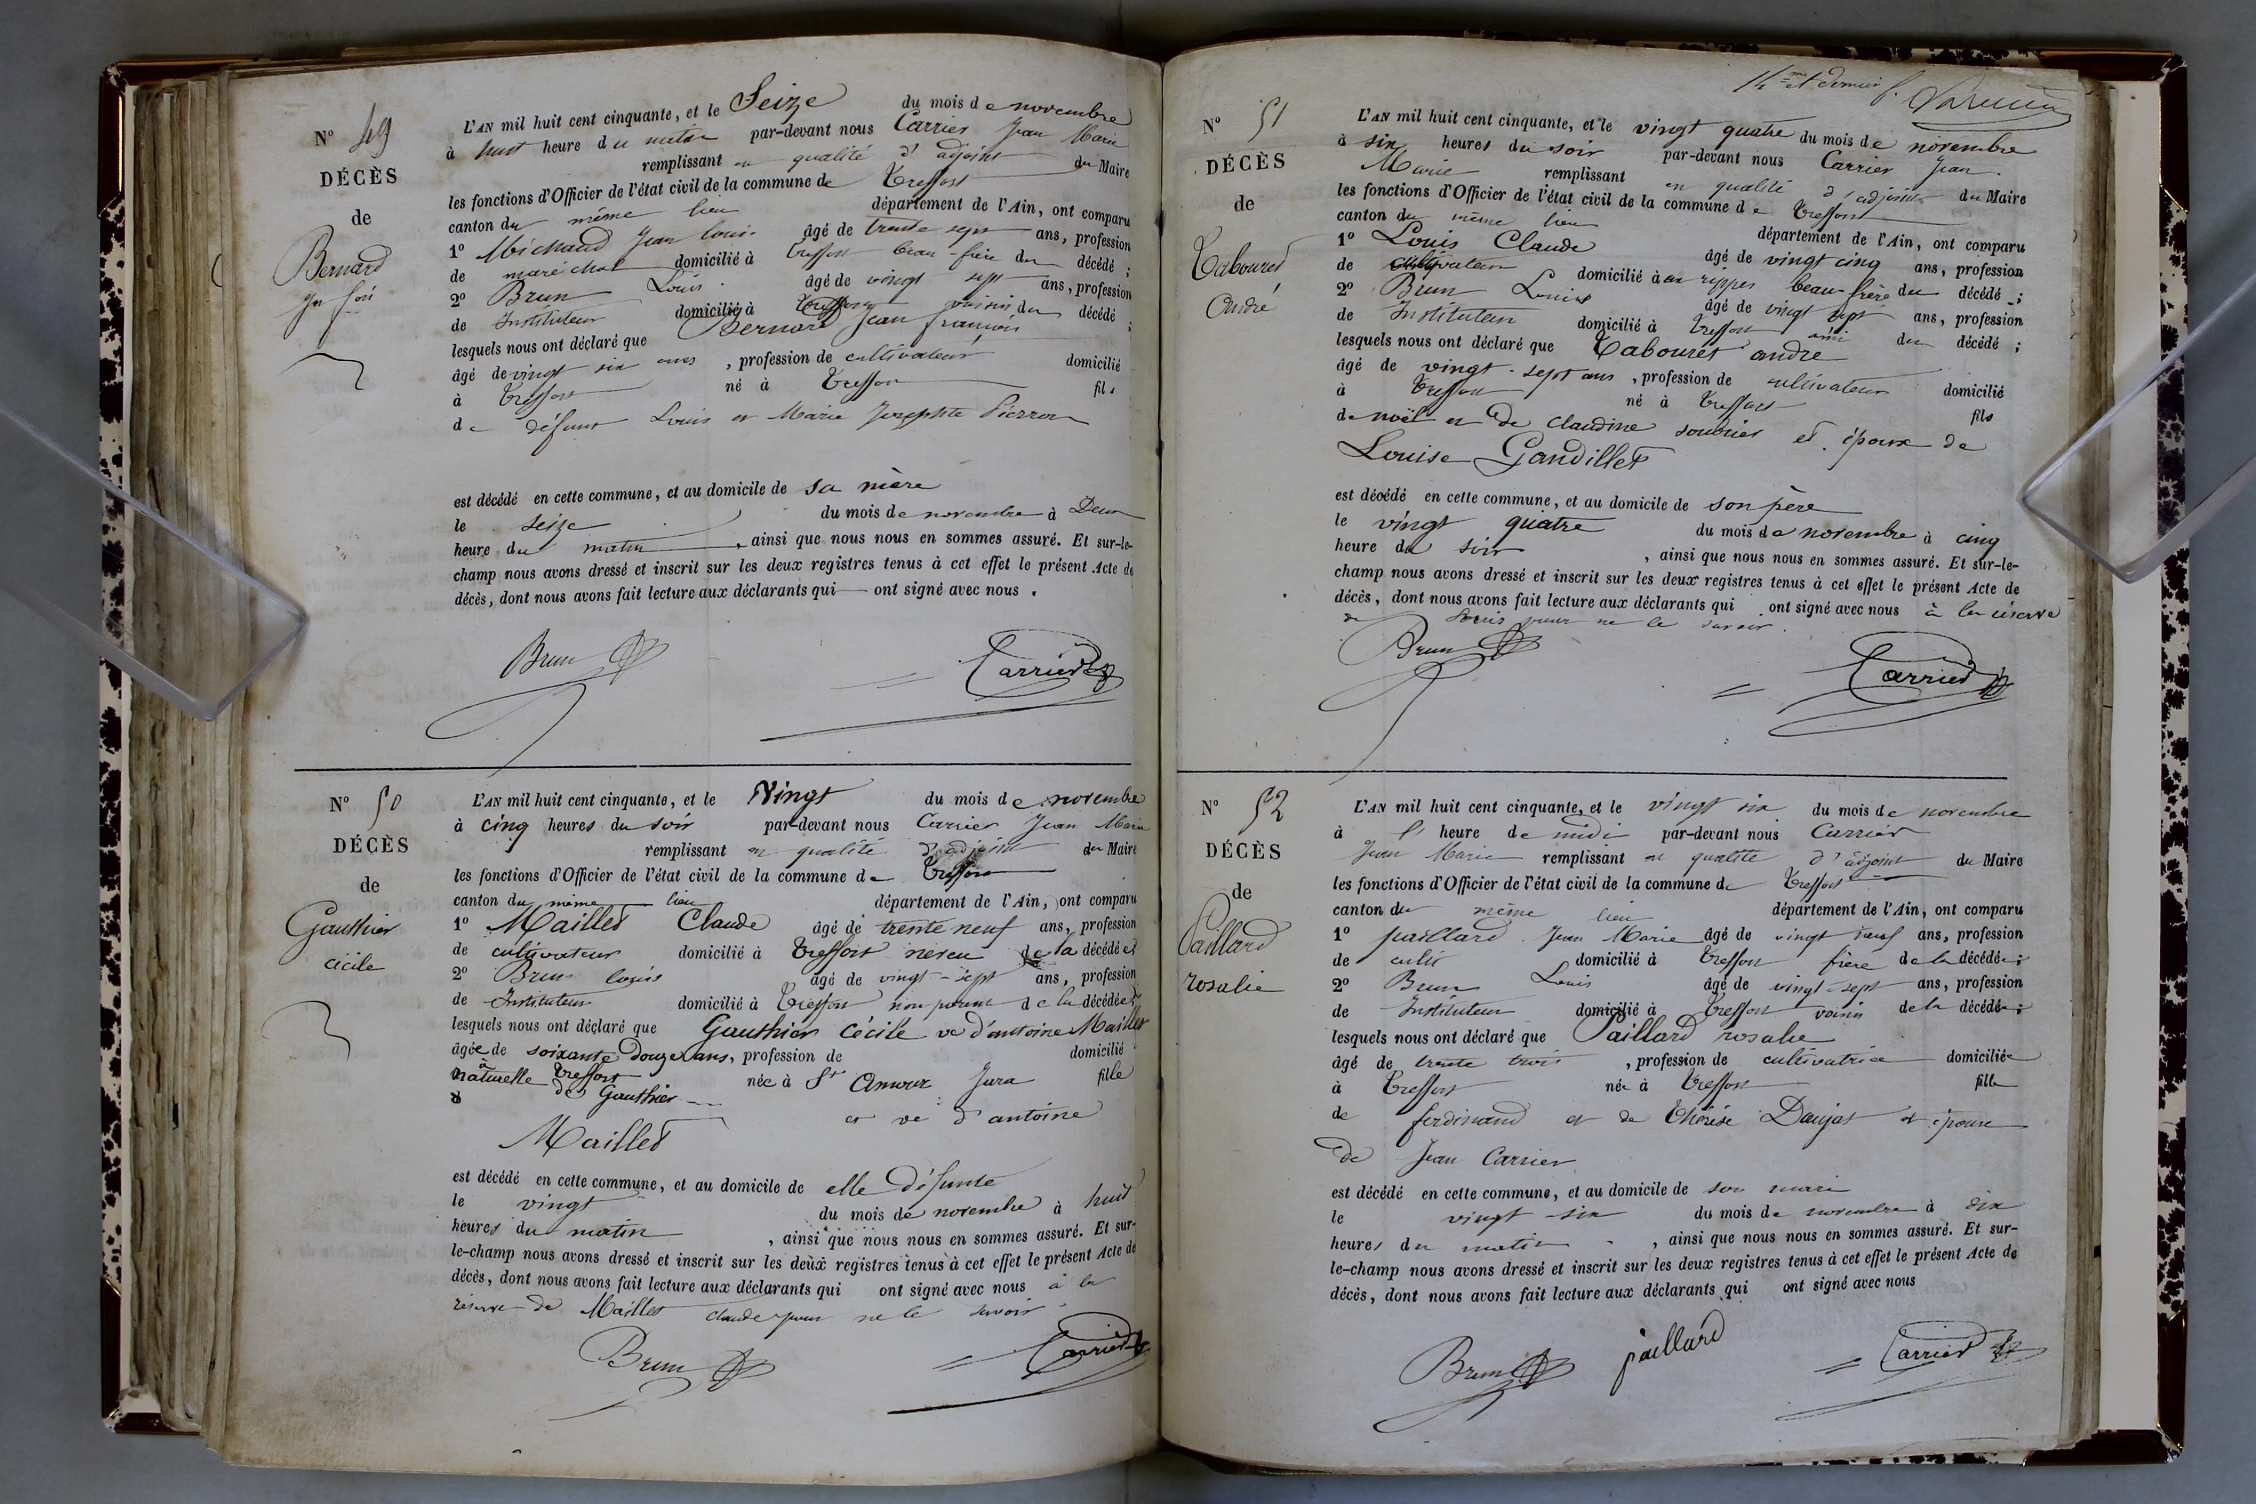 N° 49
DÉCÈS
de
Bernard
Jn fois
L'AN mil huit cent cinquante, et le Seize du mois de novembre
à huit heure du matin par-devant nous Carrier Jean Marie
remplissant en qualité d'adjoint du Maire
les fonctions d'Officier de l'état civil de la commune de Treffort
canton du même lieu département de l'Ain, ont comparu
1° Michaud Jean louis âgé de trente sept ans, profession
de maréchal domicilié à Treffort beau-frère du décédé ;
2° Brun Louis âgé de vingt sept ans, profession
de Instituteur domicilié à Treffort voisin du décédé ;
lesquels nous ont déclaré que Bernard Jean françois
âgé de vingt six ans, profession de cultivateur domicilié
à Treffort né à Treffort fils
de défunt Louis et Marie Josephte Pierron
est décédé en cette commune, et au domicile de sa mère
le seize du mois de novembre à Deux
heure du matin, ainsi que nous nous en sommes assuré. Et sur-le-
champ nous avons dressé et inscrit sur les deux registres tenus à cet effet le présent Acte de
décès, dont nous avons fait lecture aux déclarants qui ont signé avec nous.
Brun Carrier
N° 50
DÉCÈS
de
Gauthier
cécile
L'AN mil huit cent cinquante, et le Vingt du mois de novembre
à cinq heures du soir par-devant nous Carrier Jean Marie
remplissant en qualité d'adjoint du Maire
les fonctions d'Officier de l'état civil de la commune de Treffort
canton du même lieu département de l'Ain, ont comparu
1° Maillet Claude âgé de trente neuf ans, profession
de cultivateur domicilié à Treffort neveu de la décédée
2° Brun louis âgé de vingt-sept ans, profession
de Instituteur domicilié à Treffort non parent de la décédée
lesquels nous ont déclaré que Gauthier Cécile ve d'antoine Maillet
âgée de soixante Douze ans, profession de domicilié
à Treffort née à St Amour Jura fille
naturelle de Gauthier
et ve d'antoine
Maillet
est décédé en cette commune, et au domicile de elle défunte
le vingt du mois de novembre à huit
heures du matin, ainsi que nous nous en sommes assuré. Et sur-
le-champ nous avons dressé et inscrit sur les deux registres tenus à cet effet le présent Acte de
décès, dont nous avons fait lecture aux déclarants qui ont signé avec nous à la
réserve de Maillet claude pour ne le savoir
Brun Carrier
14me et dernier f.
N° 51
DÉCÈS
de
Tabouret
André
L'AN mil huit cent cinquante, et le vingt quatre du mois de novembre
à six heures du soir par-devant nous Carrier Jean
Marie remplissant en qualité d'adjoint du Maire
les fonctions d'Officier de l'état civil de la commune de Treffort
canton du même lieu département de l'Ain, ont comparu
1° Louis Claude âgé de vingt cinq ans, profession
de cultivateur domicilié à aux rippes beau-frère du décédé ;
2° Brun Louis âgé de vingt sept ans, profession
de Instituteur domicilié à Treffort ami du décédé ;
lesquels nous ont déclaré que Tabouret andré
âgé de vingt-sept ans, profession de cultivateur domicilié
à Treffort né à Treffort fils
de noël et de Claudine et époux de
Louise Gandillet
est décédé en cette commune, et au domicile de son père
le vingt quatre du mois de novembre à cinq
heure du soir, ainsi que nous nous en sommes assuré. Et sur-le-
champ nous avons dressé et inscrit sur les deux registres tenus à cet effet le présent Acte de
décès, dont nous avons fait lecture aux déclarants qui ont signé avec nous à la réserve
de Louis pour ne le savoir.
Brun Carrier
N° 52
DÉCÈS
de
Paillard
rosalie
L'AN mil huit cent cinquante, et le vingt six du mois de novembre
à l' heure de midi par-devant nous Carrier
Jean Marie remplissant en qualité d'adjoint du Maire
les fonctions d'Officier de l'état civil de la commune de Treffort
canton du même lieu département de l'Ain, ont comparu
1° paillard Jean Marie âgé de vingt neuf ans, profession
de cultr domicilié à Treffort frère de la décédée ;
2° Brun Louis âgé de vingt-sept ans, profession
de Instituteur domicilié à Treffort voisin de la décédée ;
lesquels nous ont déclaré que Paillard rosalie
âgé de trente trois, profession de cultivatrice domiciliée
à Treffort née à Treffort fille
de ferdinand et de thérése Daujat et épouse
de Jean Carrier
est décédé en cette commune, et au domicile de son mari
le vingt-six du mois de novembre à dix
heures du matin, ainsi que nous nous en sommes assuré. Et sur-
le-champ nous avons dressé et inscrit sur les deux registres tenus à cet effet le présent Acte de
décès, dont nous avons fait lecture aux déclarants qui ont signé avec nous
Brun paillard Carrier